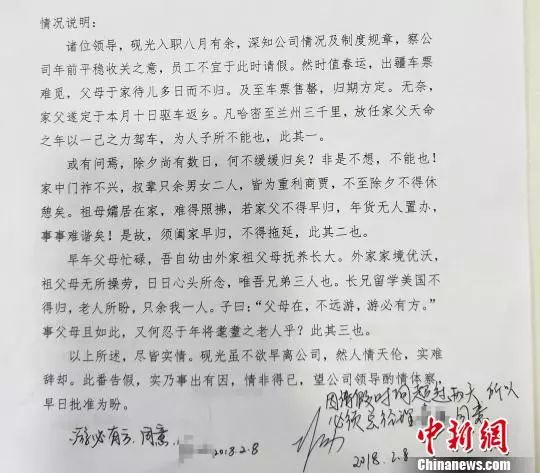 情况说明：
诸位领导，砚光入职八月有余，深知公司情况及制度规章，察公
司年前平稳收关之意，员工不宜于此时请假。然时值春运，出疆车票
难觅，父母于家待儿多日而不归。及至车票售罄，归期方定。无奈，
家父遂定于本月十日驱车返乡。凡哈密至兰州三千里，放任家父天命
之年以一己之力驾车，为人子所不能也，此其一。
或有问焉，除夕尚有数日，何不缓缓归矣？非是不想，不能也！
家中门祚不兴，叔辈只余男女二人，皆为重利商贾，不至除夕不得休
憩矣。祖母孀居在家，难得照拂，若家父不得早归，年货无人置办，
事事难谐矣！是故，须阖家早归，不得拖延，此其二也。
早年父母忙碌，吾自幼由外家祖父母抚养长大。外家家境优沃，
祖父母无所操劳，日日心头所念，唯吾兄弟三人也。长兄留学美国不
得归，老人所盼，只余我一人。子曰：“父母在，不远游，游必有方。”
事父母且如此，又何忍于年将耄耋之老人乎？此其三也。
以上所述，尽皆实情。砚光虽不欲早离公司，然人情天伦，实难
辞却。此番告假，实乃事出有因，情非得已，望公司领导酌情体察，
早日批准为盼。
因请假时间超过两天 所以
必须总经理 同意
游必有方，同意。
2018.2.8
2018.2.8
中新网
Chinanews.com